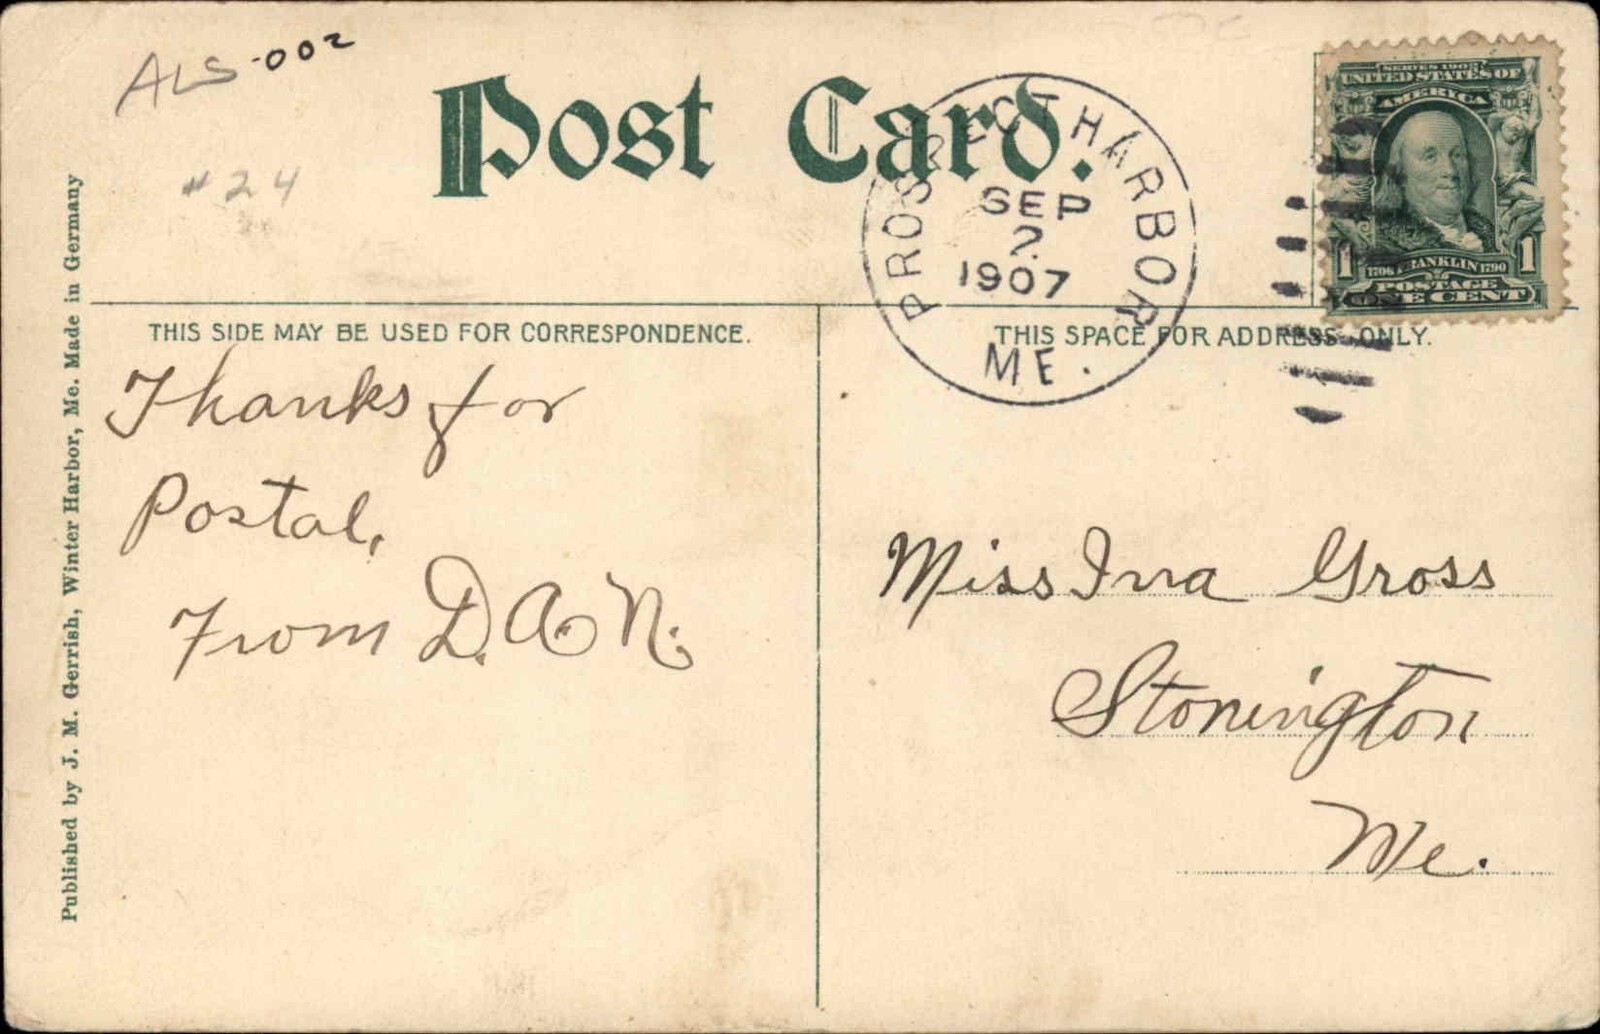 ALS-002
#24
Post Card.
PROSPECT HARBOR
SEP
2
1907
ME.
SERIES 1902
UNITED STATES OF
AMERICA
1 1706 FRANKLIN 1790 1
POSTAGE
ONE CENT
THIS SIDE MAY BE USED FOR CORRESPONDENCE.
THIS SPACE FOR ADDRESS ONLY.
Thanks for
Postal,
From D. A. N.
Miss Ina Gross
Stonington
Me.
Published by J. M. Gerrish, Winter Harbor, Me. Made in Germany